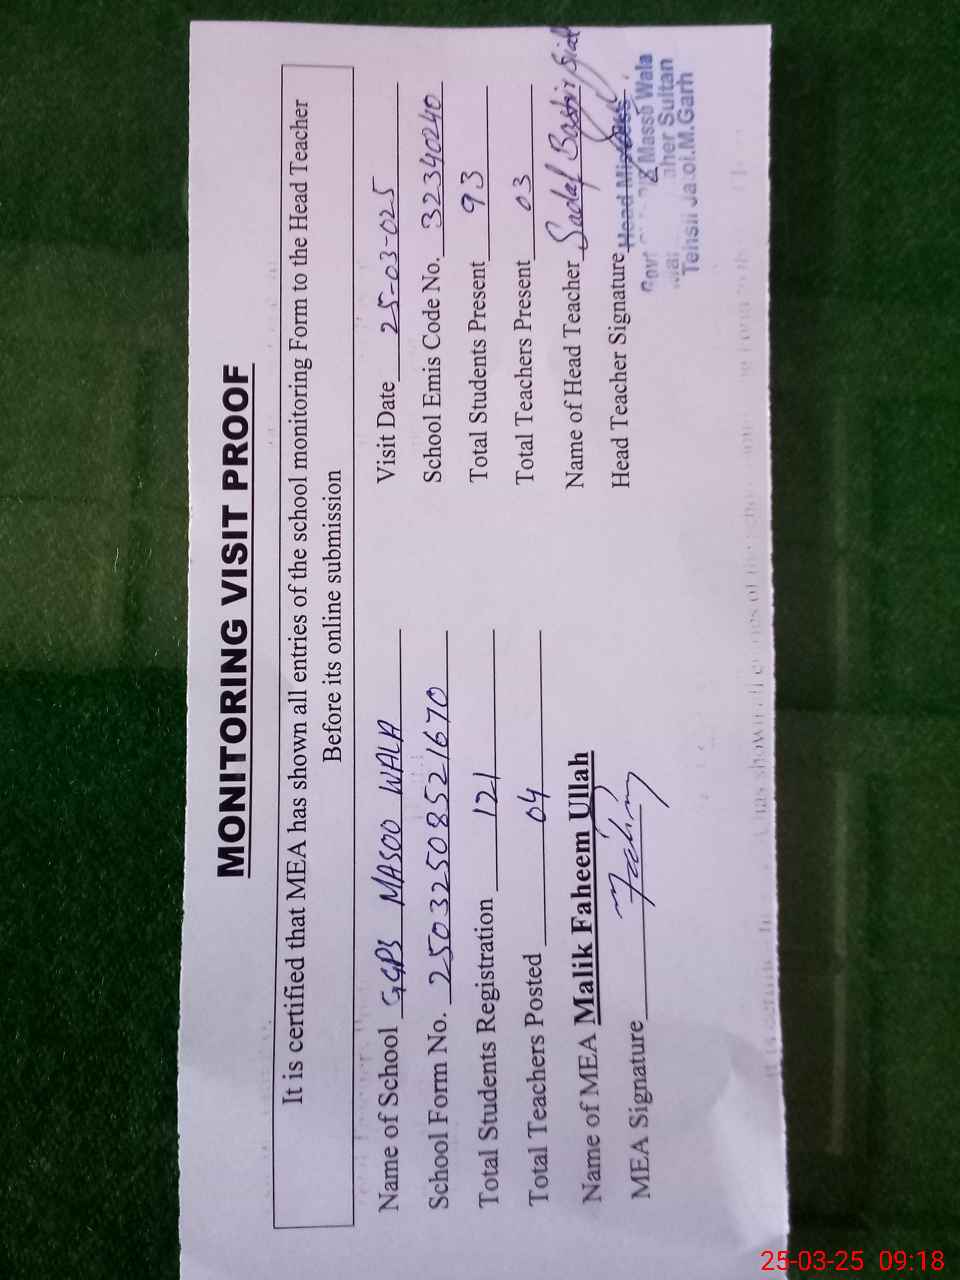 MONITORING VISIT PROOF
It is certified that MEA has shown all entries of the school monitoring Form to the Head Teacher
Before its online submission
Name of School GGPS MASOO WALA Visit Date 25-03-025
School Form No. 25032508521670 School Emis Code No. 32340240
Total Students Registration 121 Total Students Present 93
Total Teachers Posted 04 Total Teachers Present 03
Name of MEA Malik Faheem Ullah Name of Head Teacher Sadaf Bashir Sial
MEA Signature Fahim Head Teacher Signature
Head
Govt Masso Wala
aher Sultan
Tehsil Jatoi.M.Garh
25-03-25 09:18